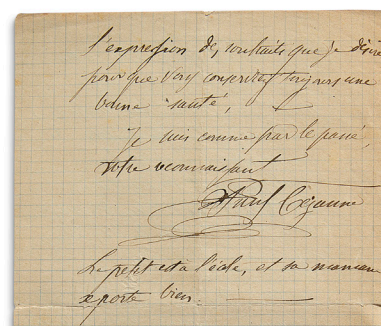 l'expression des souhaits que je désire
pour que vous conserviez toujours une
bonne santé,
Je suis comme par le passé,
votre reconnaissant
Paul Cézanne
Le petit est à l'école, et sa maman
se porte bien.